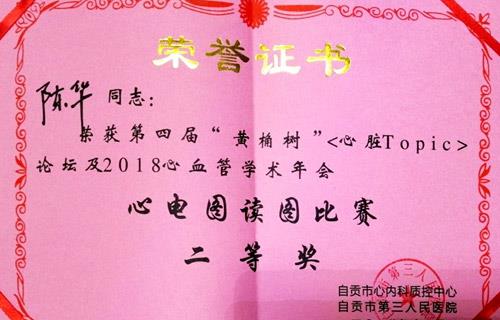 荣誉证书
陈华 同志：
荣获第四届“黄桷树”<心脏Topic>
论坛及2018心血管学术年会
心电图读图比赛
二等奖
自贡市心内科质控中心
自贡市第三人民医院